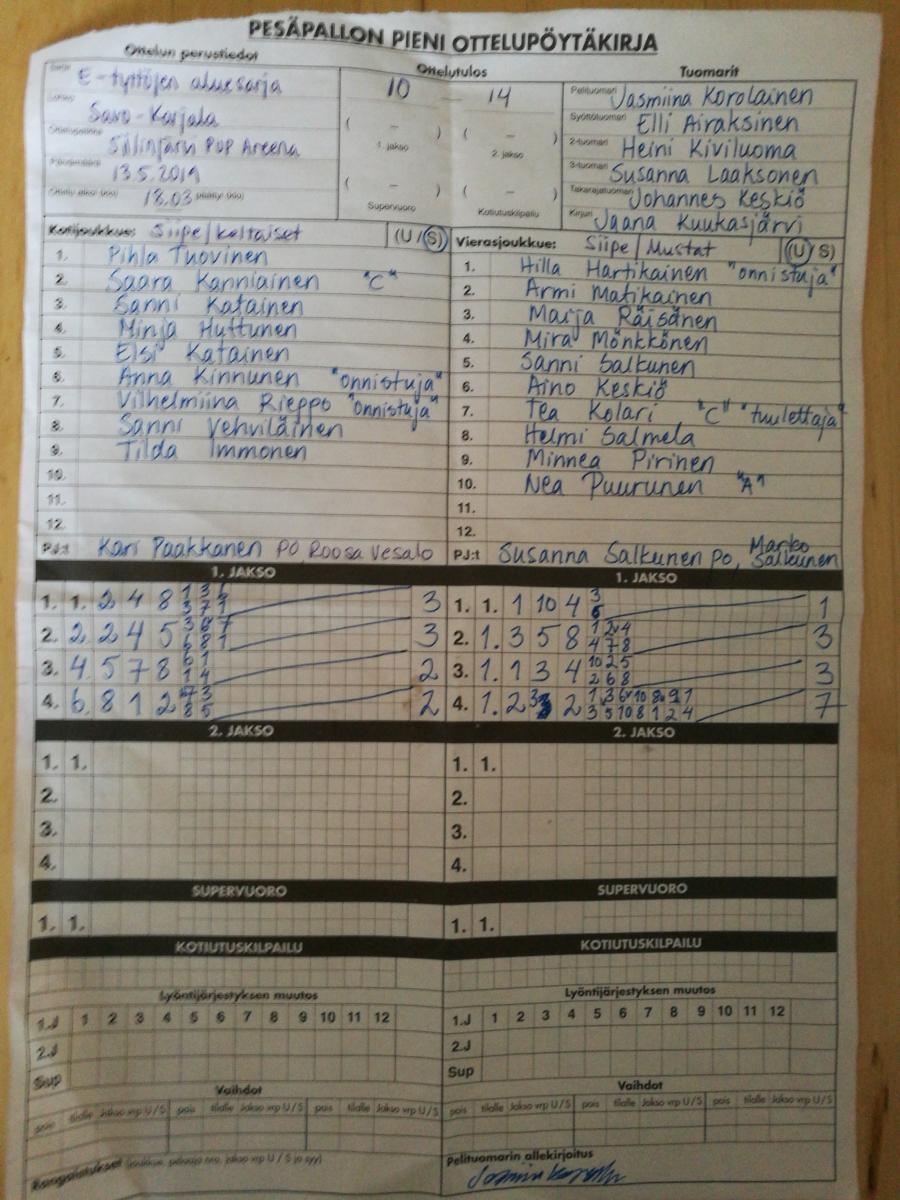 PESÄPALLON PIENI OTTELUPÖYTÄKIRJA
Ottelun perustiedot
Ottelutulos
Tuomarit
Sarja E-tyttöjen aluesarja
10 – 14
Pelituomari Jasmiina Korolainen
Lohko Savo-Karjala
Syöttötuomari Elli Airaksinen
( – ) 1. jakso
( – ) 2. jakso
Ottelupaikka Siilinjärvi PUP Areena
2-tuomari Heini Kiviluoma
Päivämäärä 13.5.2019
3-tuomari Susanna Laaksonen
( – ) Supervuoro
( – ) Kotiutuskilpailu
Ottelu alkoi (klo) 18.03 päättyi (klo)
Takarajatuomari Johannes Keskiö
Kirjuri Jaana Kuukasjärvi
Kotijoukkue: Siipe/keltaiset (U/S)
1. Pihla Tuovinen
2. Saara Kanniainen "C"
3. Sanni Katainen
4. Minja Huttunen
5. Elsi Katainen
6. Anna Kinnunen "onnistuja"
7. Vilhelmiina Rieppo "onnistuja"
8. Sanni Vehviläinen
9. Tilda Immonen
10.
11.
12.
PJ:t Kari Paakkanen PO Roosa Vesalo
Vierasjoukkue: Siipe/Mustat (U/S)
1. Hilla Hartikainen "onnistuja"
2. Armi Matikainen
3. Marja Räisänen
4. Mira Mönkkönen
5. Sanni Salkunen
6. Aino Keskiö
7. Tea Kolari "C" "tuulettaja"
8. Helmi Salmela
9. Minnea Pirinen
10. Nea Puurunen "A"
11.
12.
PJ:t Susanna Salkunen PO, Marko Salkunen
1. JAKSO
1. 1. 2 4 8 3
2. 2 2 4 5 3
3. 4 5 7 8 2
4. 6 8 1 2 2
1. JAKSO
1. 1. 1 10 4 1
2. 1. 3 5 8 3
3. 1. 1 3 4 3
4. 1. 2 2 7
2. JAKSO
1. 1.
2.
3.
4.
2. JAKSO
1. 1.
2.
3.
4.
SUPERVUORO
1. 1.
SUPERVUORO
1. 1.
KOTIUTUSKILPAILU
KOTIUTUSKILPAILU
Lyöntijärjestyksen muutos
1.J 1 2 3 4 5 6 7 8 9 10 11 12
2.J
Sup
Lyöntijärjestyksen muutos
1.J 1 2 3 4 5 6 7 8 9 10 11 12
2.J
Sup
Vaihdot
pois tilalle Jakso vrp U/S pois tilalle Jakso vrp U/S pois tilalle Jakso vrp U/S
Vaihdot
pois tilalle Jakso vrp U/S pois tilalle Jakso vrp U/S pois tilalle Jakso vrp U/S
Rangaistukset (joukkue, pelaaja nro, jakso vrp U / S ja syy)
Pelituomarin allekirjoitus